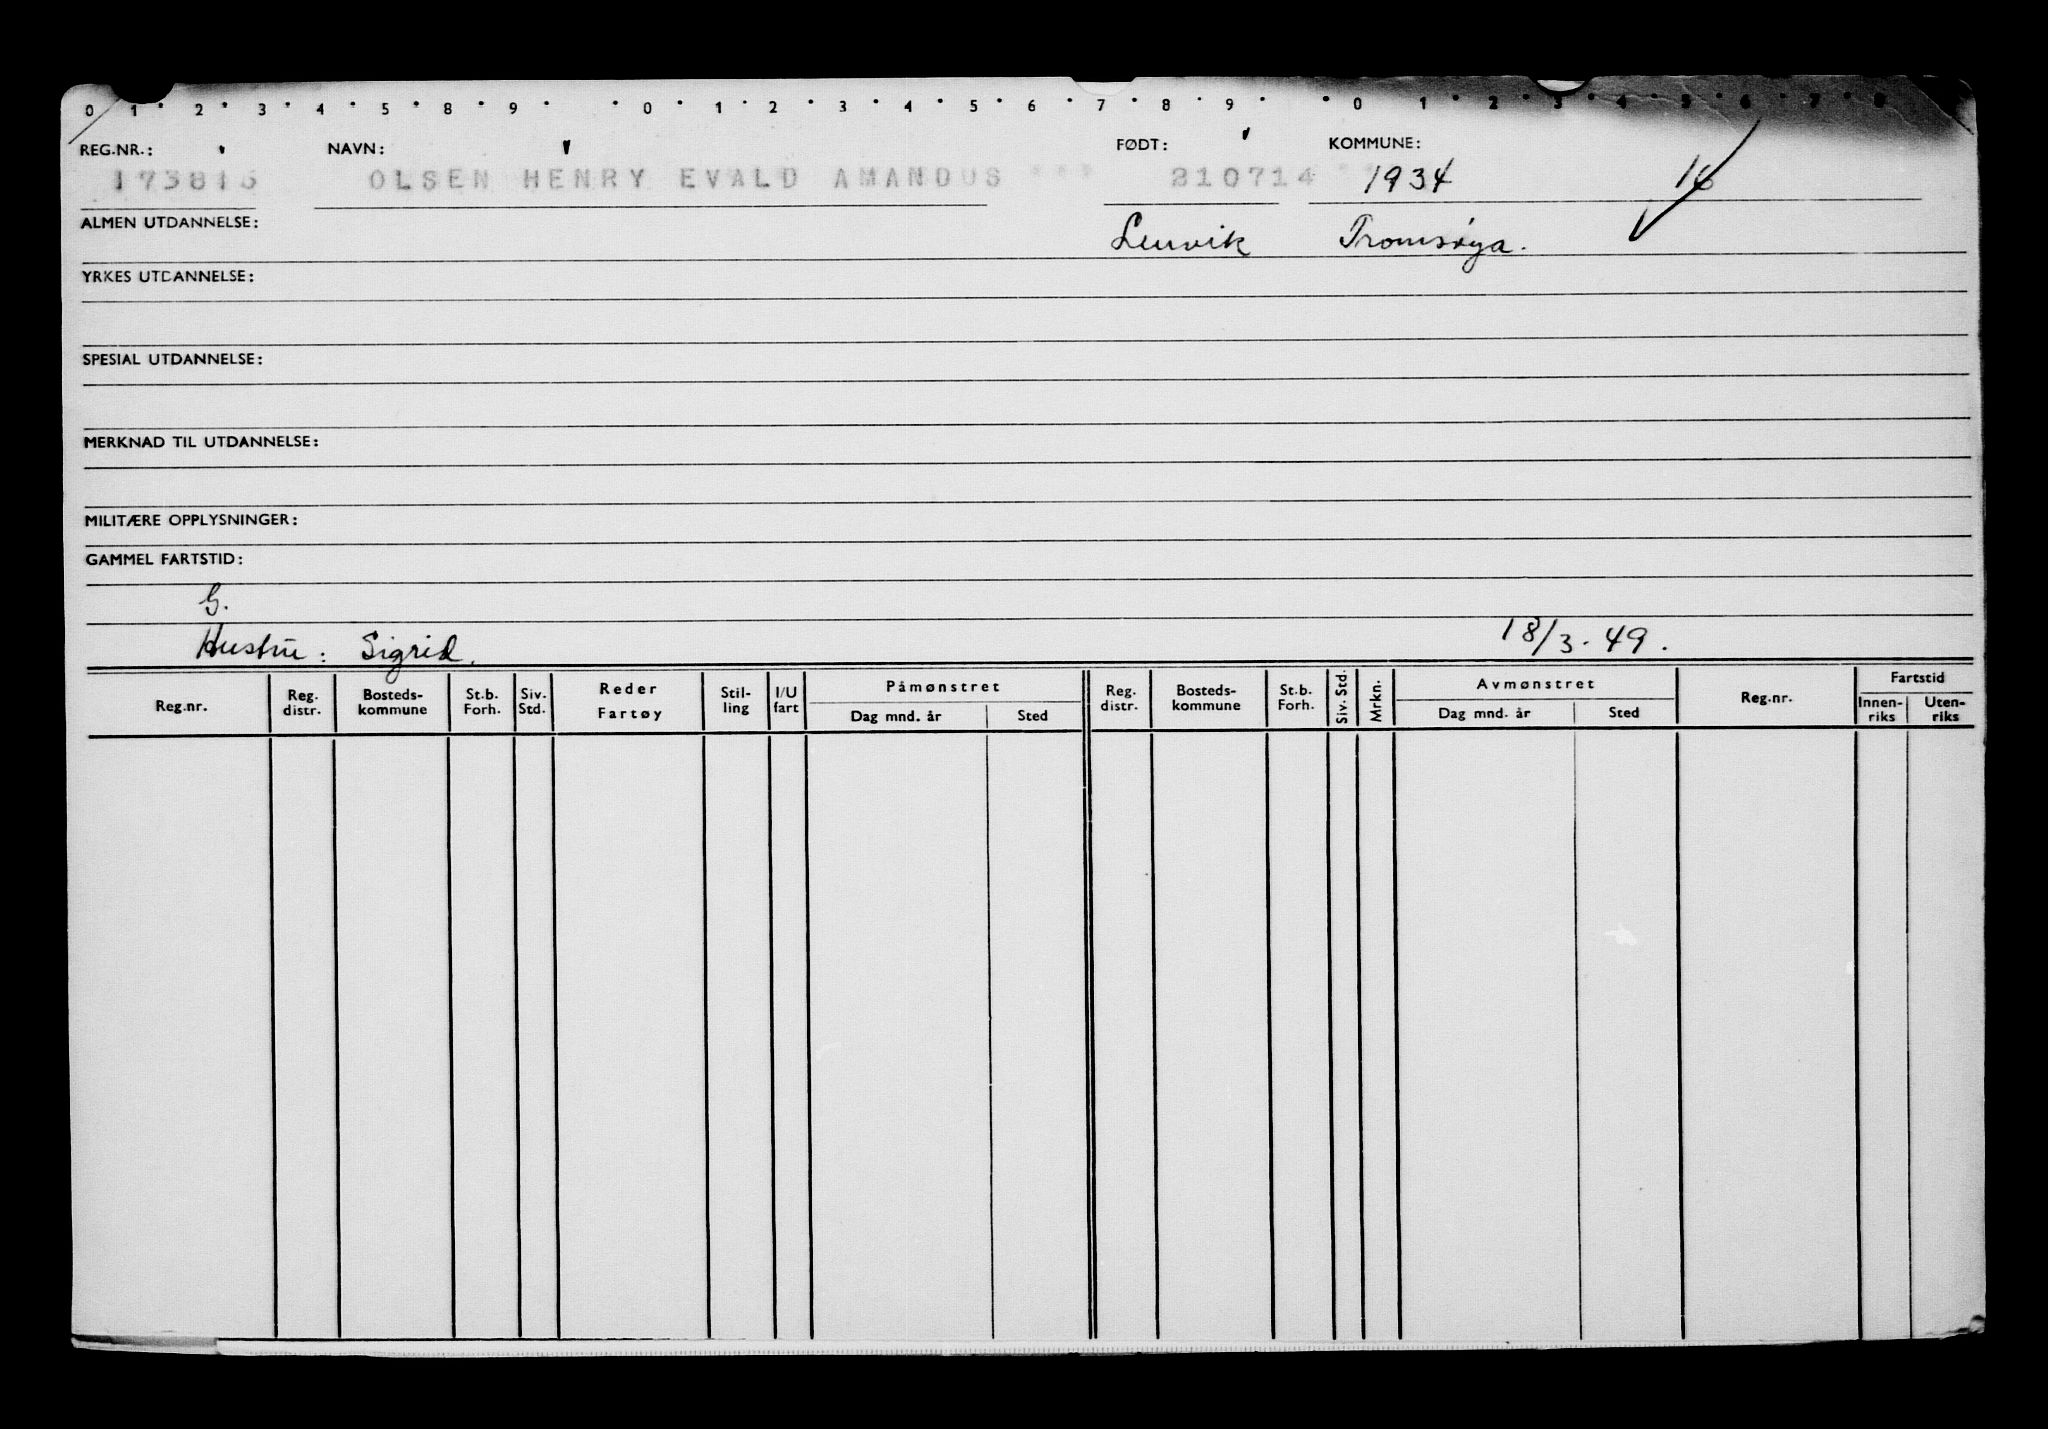 0 1 2 3 4 5 8 9 0 1 2 3 4 5 6 7 8 9 0 1 2 3 4 5 6 7 8
REG.NR.: NAVN: FØDT: KOMMUNE:
OLSEN HENRY EVALD AMANDUS 210714 1934 16
ALMEN UTDANNELSE: Lenvik Tromsøya.
YRKES UTDANNELSE:
SPESIAL UTDANNELSE:
MERKNAD TIL UTDANNELSE:
MILITÆRE OPPLYSNINGER:
GAMMEL FARTSTID:
G.
Hustru: Sigrid. 18/3-49.
Reg.nr. Reg. distr. Bosteds-kommune St.b. Forh. Siv. Std. Reder Fartøy Stil-ling I/U fart Påmønstret Dag mnd. år Sted Reg. distr. Bosteds-kommune St.b. Forh. Siv. Std. Mrkn. Avmønstret Dag mnd. år Sted Reg.nr. Fartstid Innen-riks Uten-riks